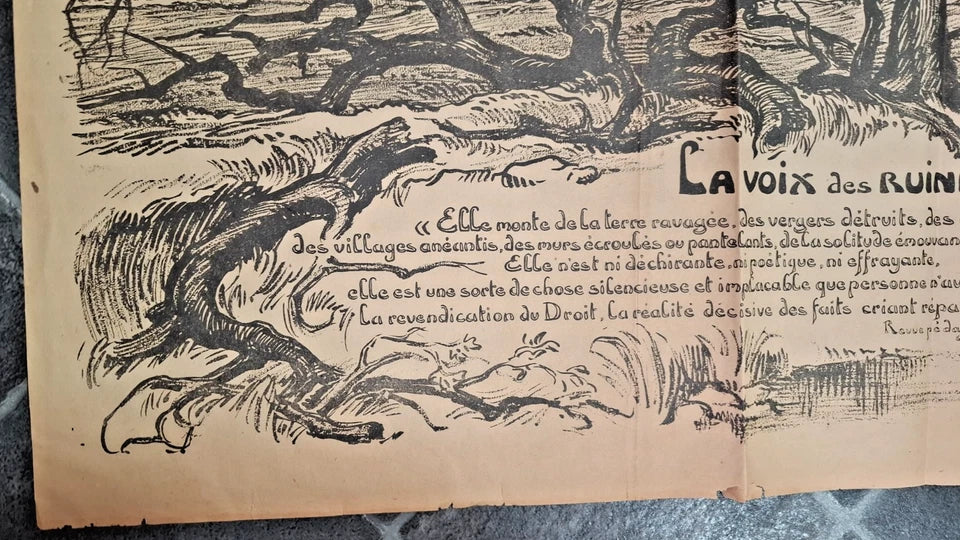 La voix des RUIN
« Elle monte de la terre ravagée, des vergers détruits, des
des villages anéantis, des murs écroulés ou pantelants, de la solitude émouvan
Elle n'est ni déchirante, ni poétique, ni effrayante,
elle est une sorte de chose silencieuse et implacable que personne n'au
La revendication du Droit, la réalité décisive des faits criant répa